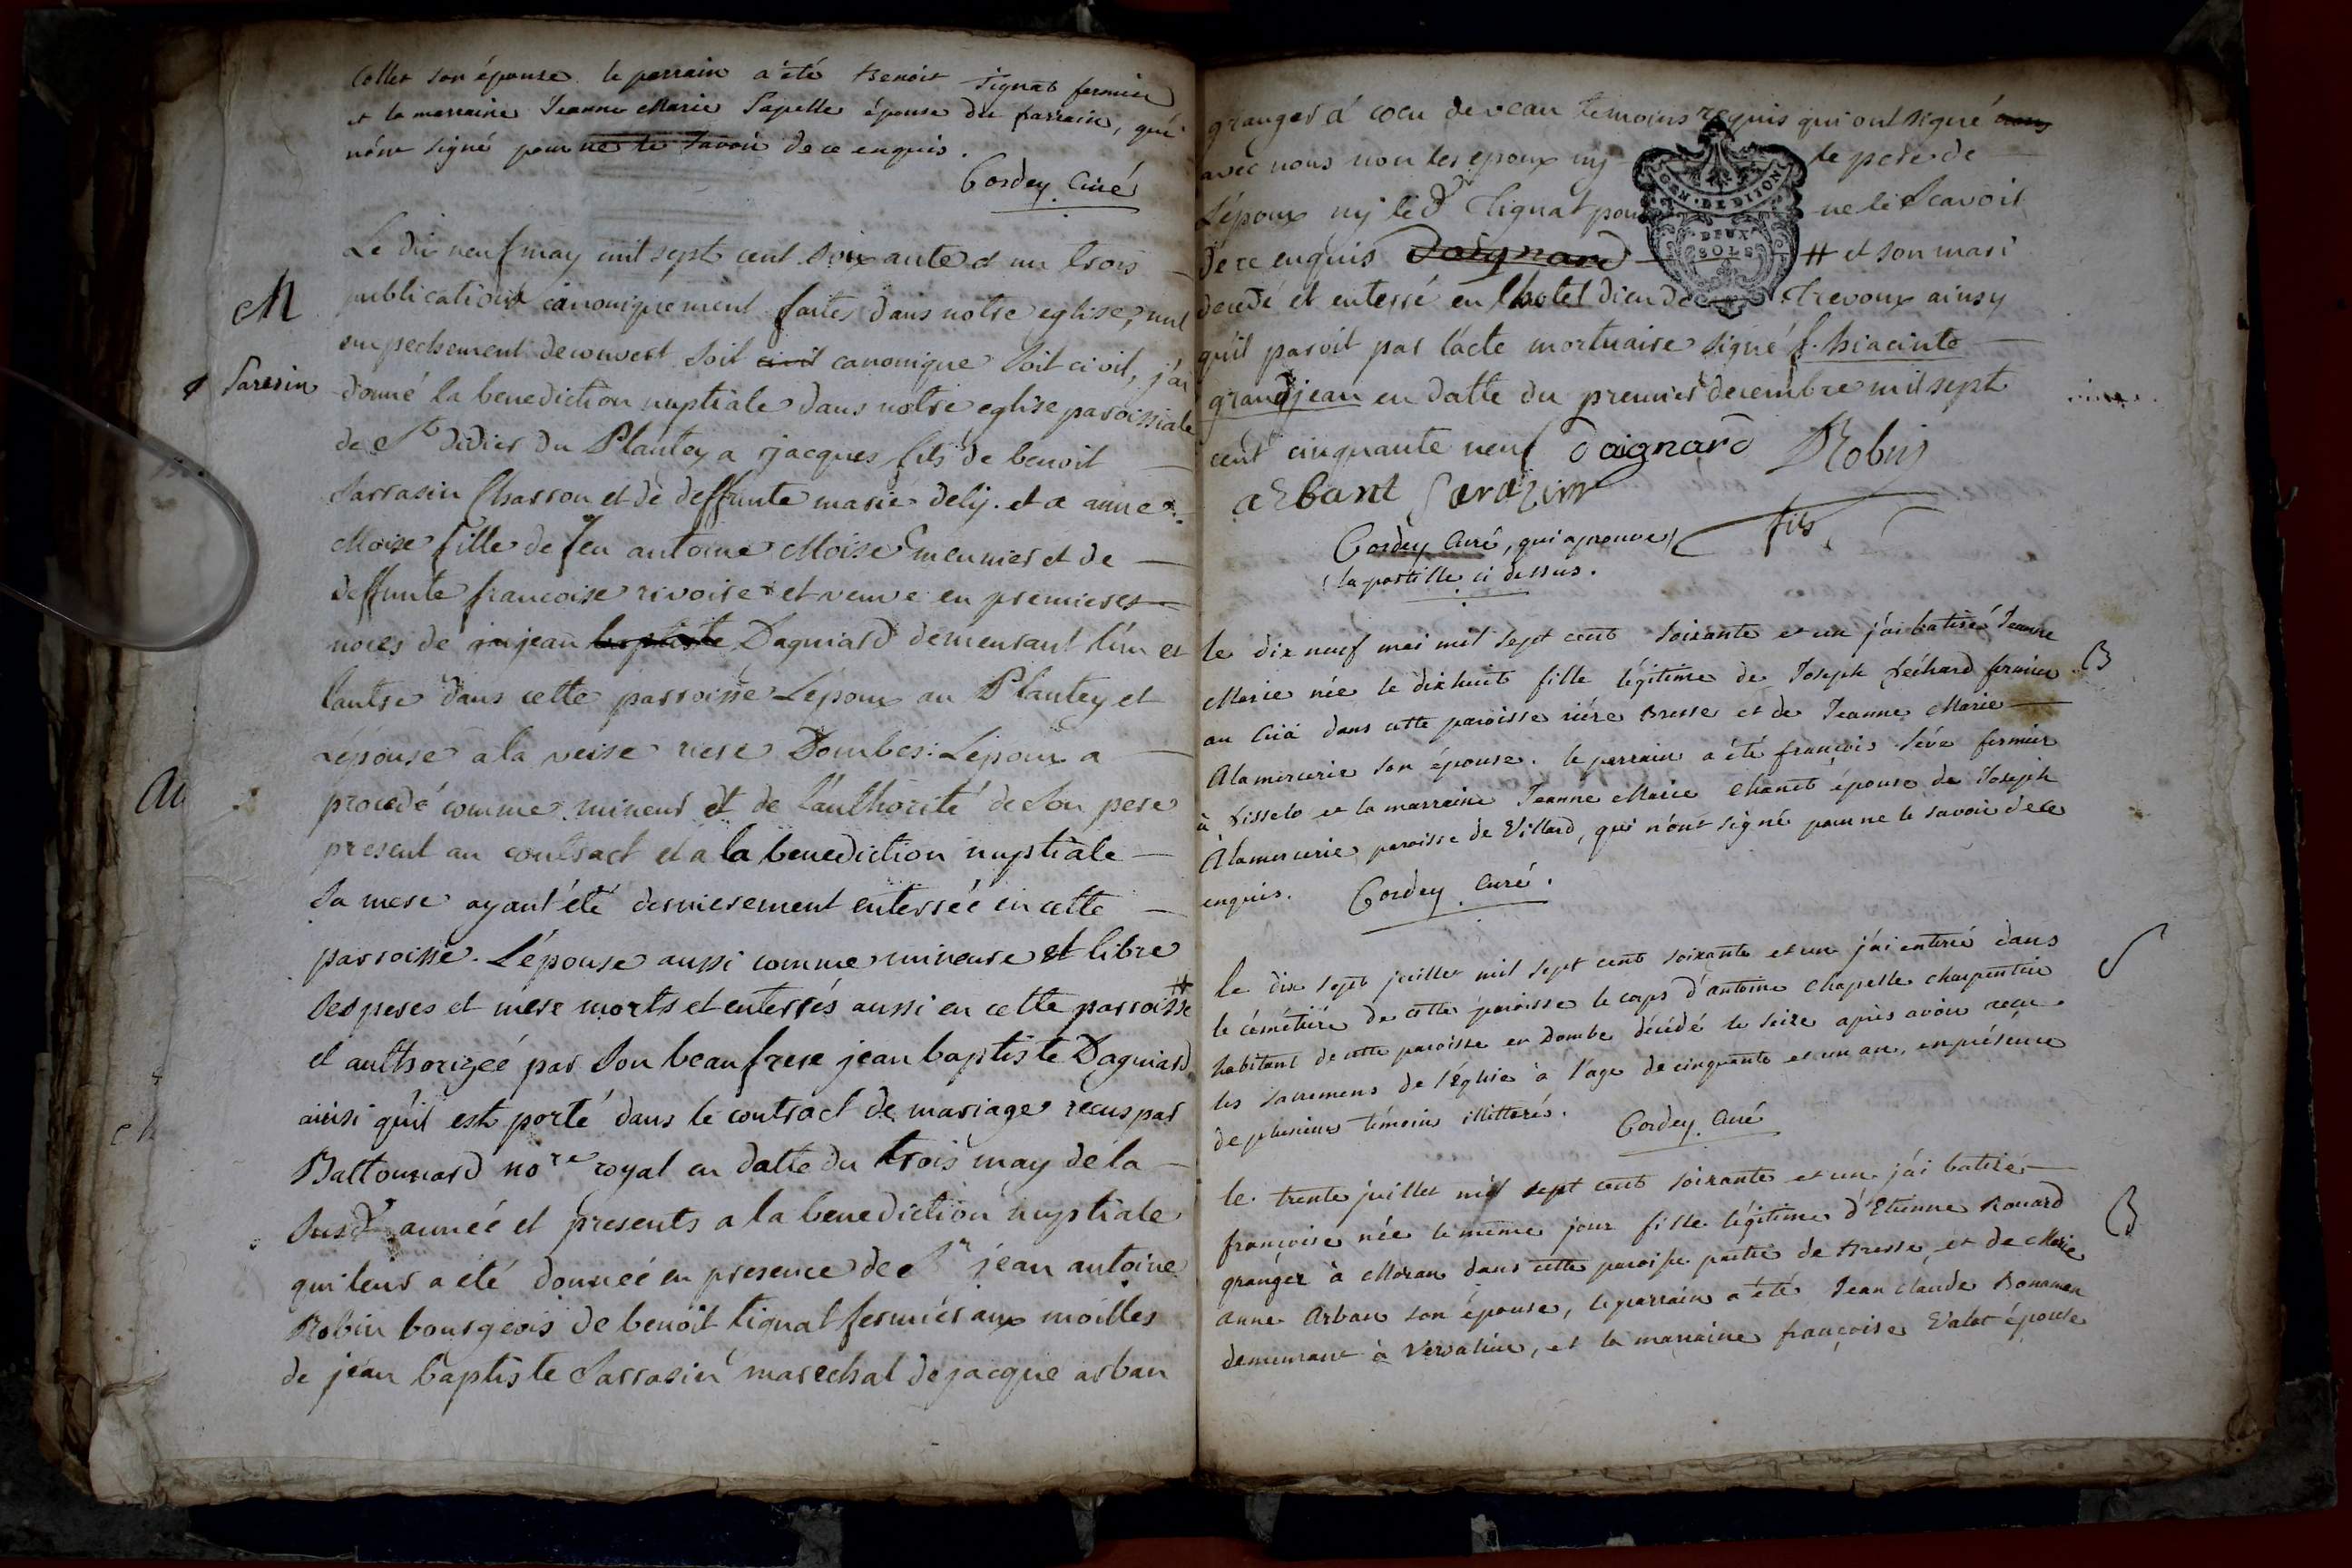 Collet son épouse le parrain a été Benoit Tignat fermier
et la marraine Jeanne Marie Papelle épouse du parrain, qui
n'ont signé pour ne le savoir de ce enquis.
Cordey Curé
Le dix neuf may mil sept cent soixante et un trois
publications canoniquement faites dans notre eglise, nul
M
empechement decouvert soit civil canonique soit civil, j'ai
Sarasin
donné la benediction nuptiale dans notre eglise paroissiale
de St didier du Plantey a jacques fils de benoit
Sarrasin Charron et de deffunte marie dely. et a anne
Moise fille de feu antoine Moise meunier et de
deffunte francoise rivoire et veuve en premieres
noces de jean baptiste Dagniard demeurant l'un et
lautre dans cette parroisse Lépoux au Plantey et
Lépouse a la veise riere Dombes: Lépoux a
procedé comme mineur et de l'authorité de son pere
present au contract et a la benediction nuptiale
sa mere ayant été dernierement enterrée en cette
parroisse. L'épouse aussi comme mineure et libre
ses peres et mere morts et enterrés aussi en cette parroisse #
et authorizée par son beaufrere jean baptiste Dagniard
ainsi qu'il est porté dans le contract de mariage recus par
Battonnard nore royal en datte du trois may de la
susd année et presents a la benediction nuptiale
qui leur a été donnée en presence de Sr jean antoine
Robin bourgeois de benoit tignat fermier aux moilles
de jean baptiste Sarrasin marechal de jacque arban
granger a cocu deveau temoins requis qui ont signé avec
avec nous non les epoux ny le pere de
Lépoux ny led Tignat pour ne le scavoir
de ce enquis Daignard # et son mari
GEN. DE DIJON
DEUX
SOLS
decedé et enterré en l'hotel dieu de Trevoux ainsy
qu'il paroit par l'acte mortuaire signé f. hiacinte
grandjean en datte du premier decembre mil sept
cent cinquante neuf Daignard Robin
arbant Sarazin
fils
Cordey Curé, qui aprouve
la postille ci dessus.
le dix neuf mai mil sept cent soixante et un j'ai batisé Jeanne
B
Marie née le dixhuit fille légitime de Joseph Lechard fermier
au Cria dans cette paroisse riére Bresse et de Jeanne Marie
Alamercerie son épouse. le parrain a été françois Séve fermier
à Lisselo et la marraine Jeanne Marie Chanet épouse de Joseph
Alamercerie paroisse de Villard, qui n'ont signé pour ne le savoir de ce
enquis. Cordey Curé.
le dix sept juillet mil sept cent soixante et un j'ai enterré dans
S
le cémétiére de cette paroisse le corps d'antoine Chapelle charpentier
habitant de cette paroisse en Dombe décédé le seize après avoir reçu
les sacremens de l'église à l'age de cinquante et un an, en présence
de plusieurs témoins illitterés.
Cordey Curé
le trente juillet mil sept cent soixante et un j'ai batisé
B
françoise née le même jour fille légitime d'Etienne Rouard
granger à Moran dans cette paroisse partie de Bresse, et de Marie
anne Arban son épouse, le parrain a été Jean Claude Bonaman
demeurant à Versatiere, et la marraine françoise Valet épouse